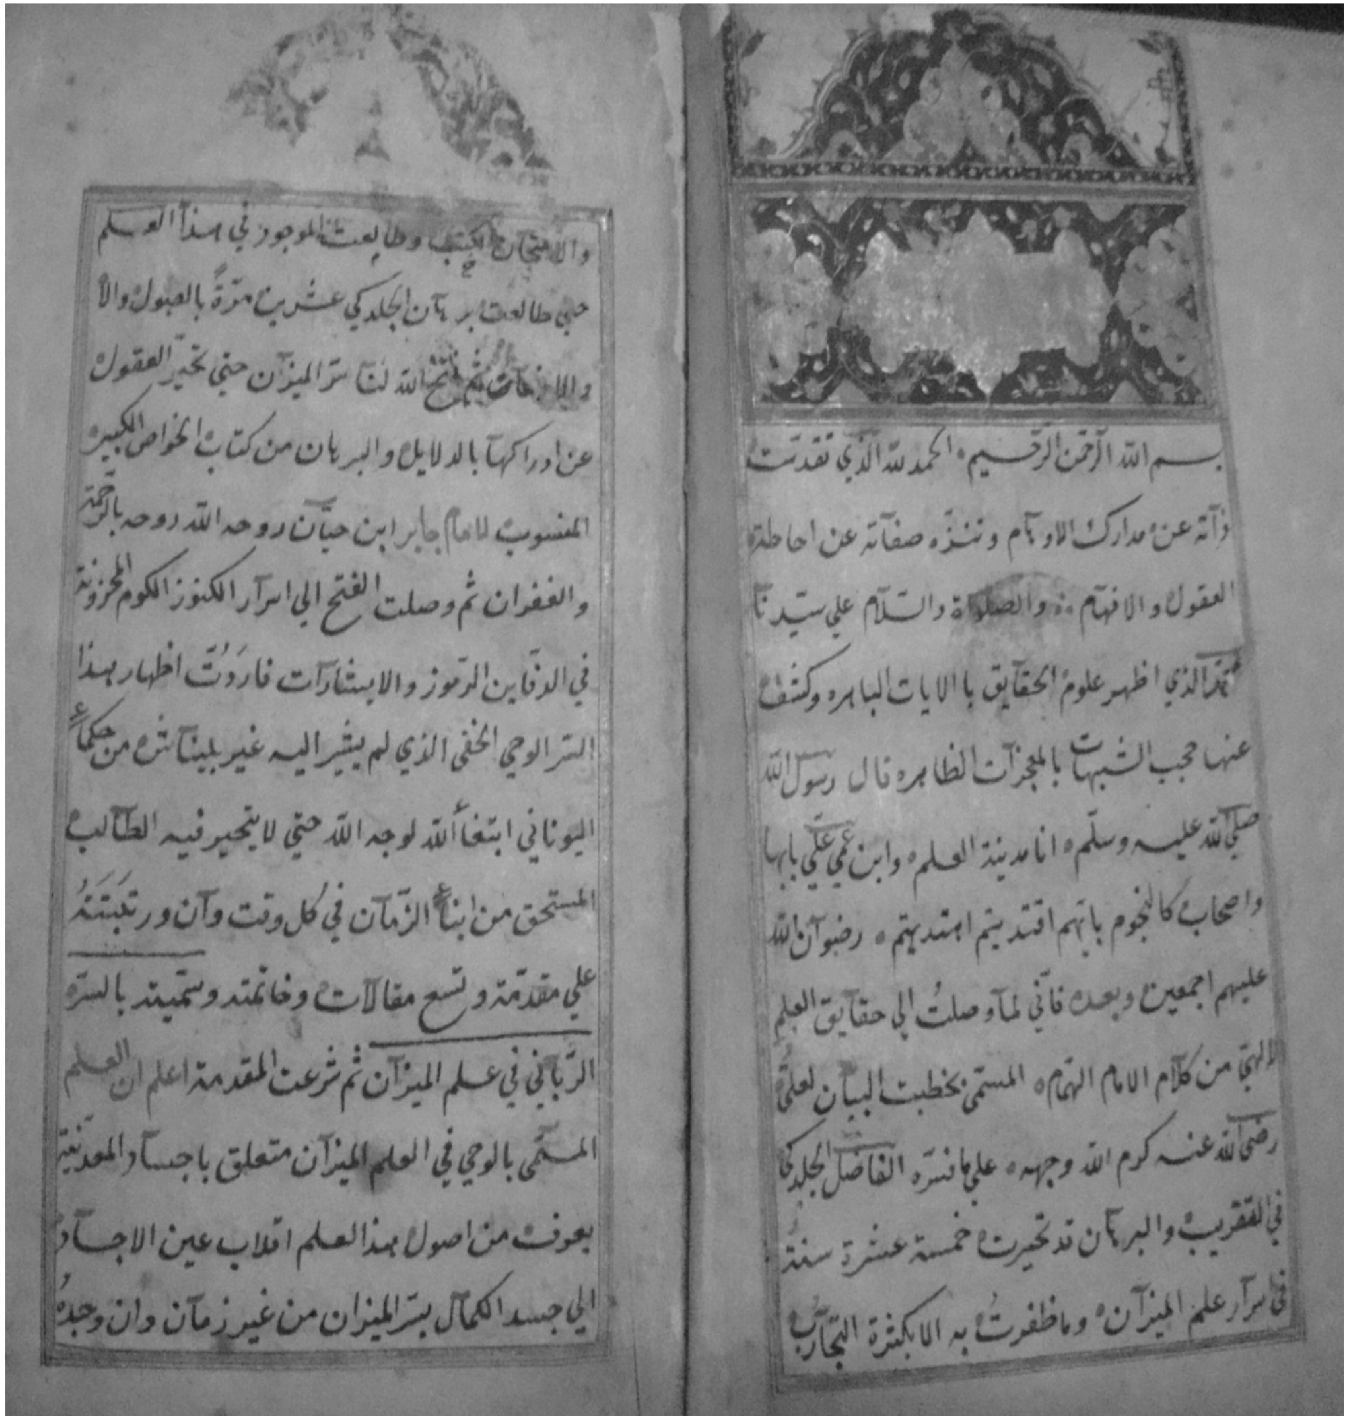 بسم الله الرحمن الرحيم الحمد لله الذي تقدست
ذاته عن مدارك الاوهام وتنزه صفاته عن احاطة
العقول والافهام والصلواة والسلام علي سيدنا
محمد الذي اظهر علوم الحقايق با الايات الباهره وكشف
عنها حجب الشبهات بالمعجزات الظاهره قال رسول الله
صلي الله عليه وسلم انا مدينة العلم وابن عمي علي بابها
واصحاب كالنجوم بايهم اقتديتم اهتديتم رضوان الله
عليهم اجمعين وبعده فاني لما وصلت الي حقايق العلم
الالهي من كلام الامام الهمام المسمي بخطبت البيان لعلي
رضي الله عنه كرم الله وجهه علي ما فسره الفاضل الجلدكي
في التقريب والبرهان قد تحيرت خمسة عشرة سنة
في اسرار علم الميزان وما ظفرت به الا بكثرة التجارب
والامتحان الكتب وطالعت الموجود في هذا العلم
حتي طالعت برهان الجلدكي عشرين مرة بالقبول والا
والا ثم فتح الله لنا سر الميزان حتي تحير العقول
عن ادراكها بالدلايل والبرهان من كتاب الخواص الكبيره
المنسوب لامام جابر ابن حيان روحه الله روحه بالرحمة
والغفران ثم وصلت الفتح الي اسرار الكنوز الكوم المخزونة
في الدفاين الرموز والايشارات فاردت اظهار هذا
السر الوحي الخفي الذي لم يشير اليه غير بليناس من حكماء
اليوناني ابتغاء لله لوجه الله حتي لا يتحير فيه الطالب
المستحق من ابناء الزمان في كل وقت وآن ورتبته
علي مقدمة وتسع مقالات وخاتمته وسميته بالسره
الرباني في علم الميزان ثم شرعت المقدمة اعلم ان العلم
المسمي بالوحي في العلم الميزان متعلق باجساد المعدنية
يعرف من اصول هذا العلم اقلاب عين الاجساد
الي جسد الكمال بسر الميزان من غير زمان وان وجده